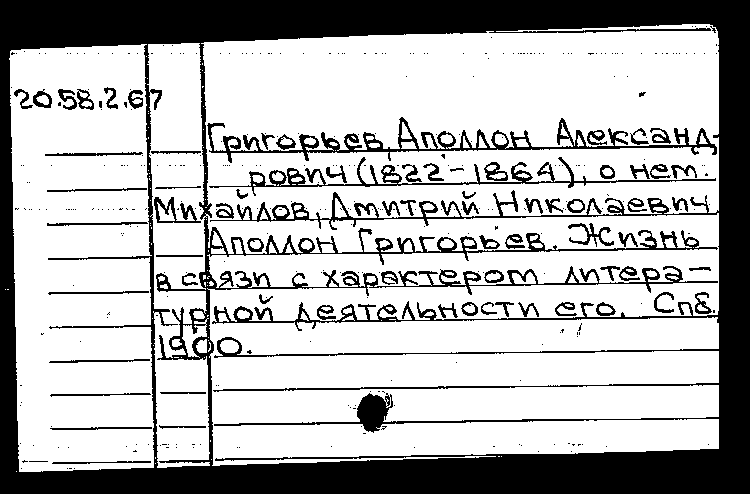 20.58.2.67
Григорьев, Аполлон Александ-
рович (1822-1864), о нем.
Михайлов, Дмитрий Николаевич
Аполлон Григорьев. Жизнь
в связи с характером литера-
турной деятельности его. Спб.
1900.